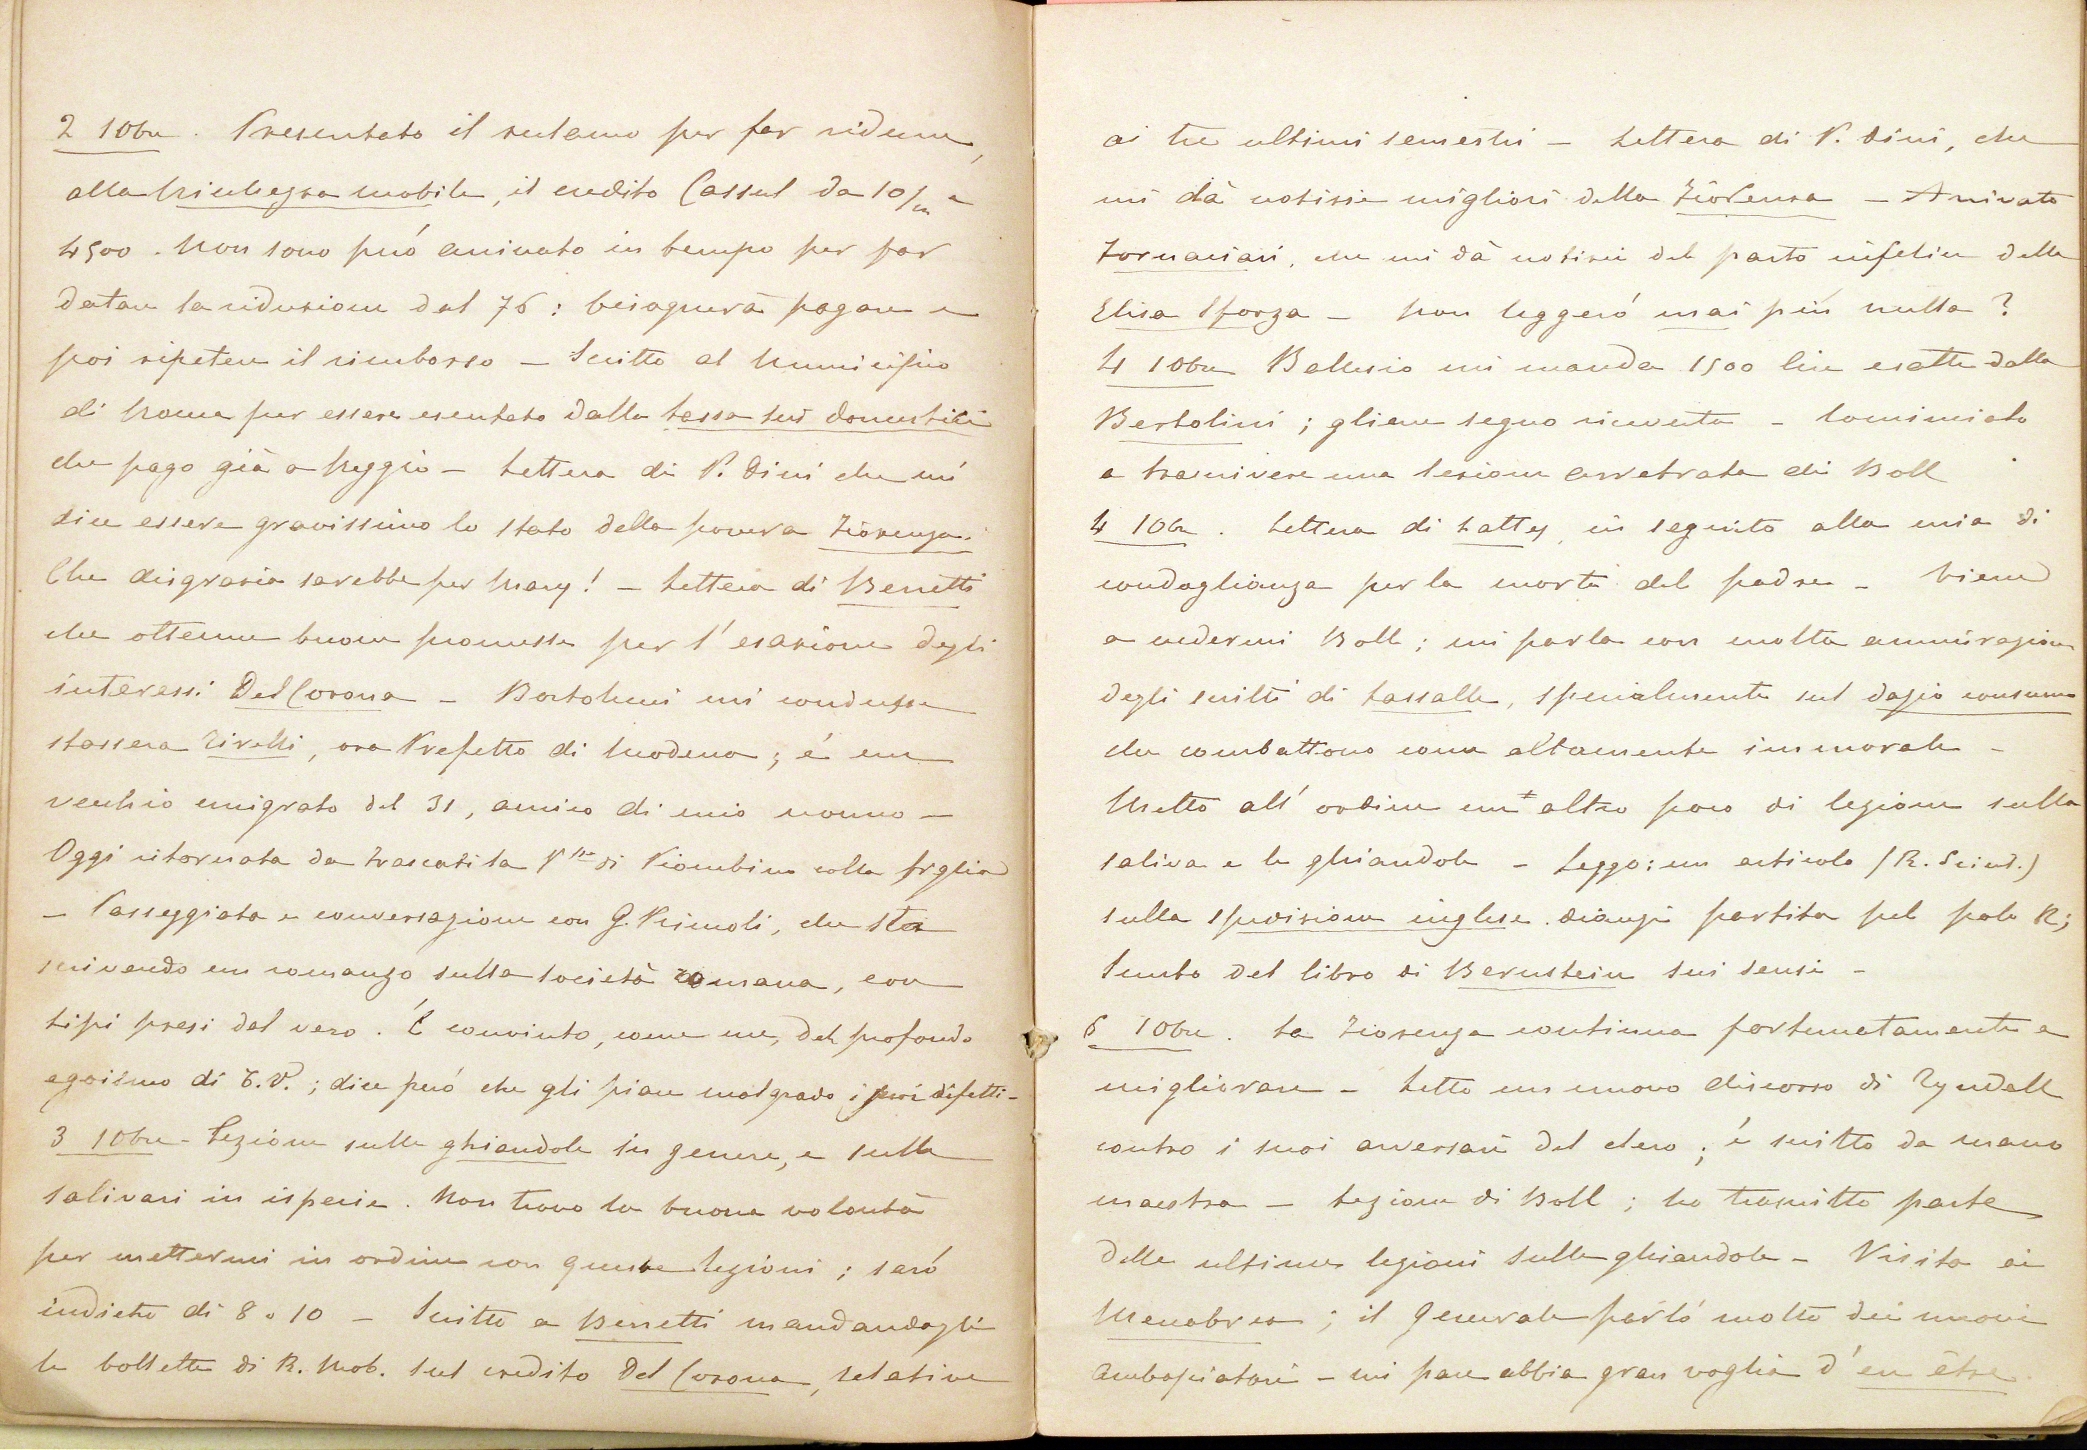 2 10bre. Presentato il reclamo per far ridurre,
alla Ricchezza mobile, il credito Cassul da 10/m a
4500. Non sono però arrivato in tempo per far
datare la riduzione dal 76: bisognerà pagare e
poi ripetere il rimborso – Scritto al Municipio
di Roma per essere esentato dalla tassa sui domestici
che pago già a Reggio – Lettera di P. Dini che mi
dice essere gravissimo lo stato della povera Fiorenza.
Che disgrazia sarebbe per Mary! – Lettera di Berretti
che ottenne buone promesse per l'esazione degli
interessi Del Corona – Bortolucci mi condusse
stassera Zirelli, ora Prefetto di Modena; é un
vecchio emigrato del 31, amico di mio nonno –
Oggi ritornata da Frascati la Pssa di Piombino colla figlia
– Passeggiata e conversazione con G. Primoli, che sta
scrivendo un romanzo sulla società romana, con
tipi presi dal vero. É convinto, come me, del profondo
egoismo di E.V.; dice peró che gli piace malgrado i suoi difetti –
3 10bre – Lezione sulle ghiandole in genere, e sulle
salivari in ispecie. Non trovo la buona volontà
per mettermi in ordine con queste lezioni; saró
indietro di 8 o 10 – Scritto a Berretti mandandogli
le bollette di R. Mob. sul credito Del Corona, relative
ai tre ultimi semestri – Lettera di P. Dini, che
mi dà notizie migliori della Fiorenza – Arrivato
Fornaciari, che mi dà notizie del parto infelice della
Elisa Sforza – Non leggeró mai più nulla?
4 10bre Ballerio mi manda 1500 lire esatte dalla
Bertolini; gliene segno ricevuta – Cominciato
a trascrivere una lezione arretrata di Boll
4 10bre. Lettera di Latty, in seguito alla mia di
condoglianza per la morte del padre – Viene
a vedermi Boll; mi parla con molta ammirazione
degli scritti di Lassalle, specialmente sul dazio consumo
che combattono come altamente immorale –
Metto all'ordine un altro poco di lezione sulla
saliva e le ghiandole – Leggo: un articolo (R. Scient.)
sulla spedizione inglese dianzi partita pel polo N;
Sunto del libro di Bernstein sui sensi –
5 10bre. La Fiorenza continua fortunatamente a
migliorare – Letto un nuovo discorso di Tyndall
contro i suoi avversari del clero; é scritto da mano
maestra – Lezione di Boll; ho trascritto parte
delle ultime lezioni sulle ghiandole – Visita ai
Menabrea; il Generale parló molto dei nuovi
ambasciatori – mi pare abbia gran voglia d'en être.